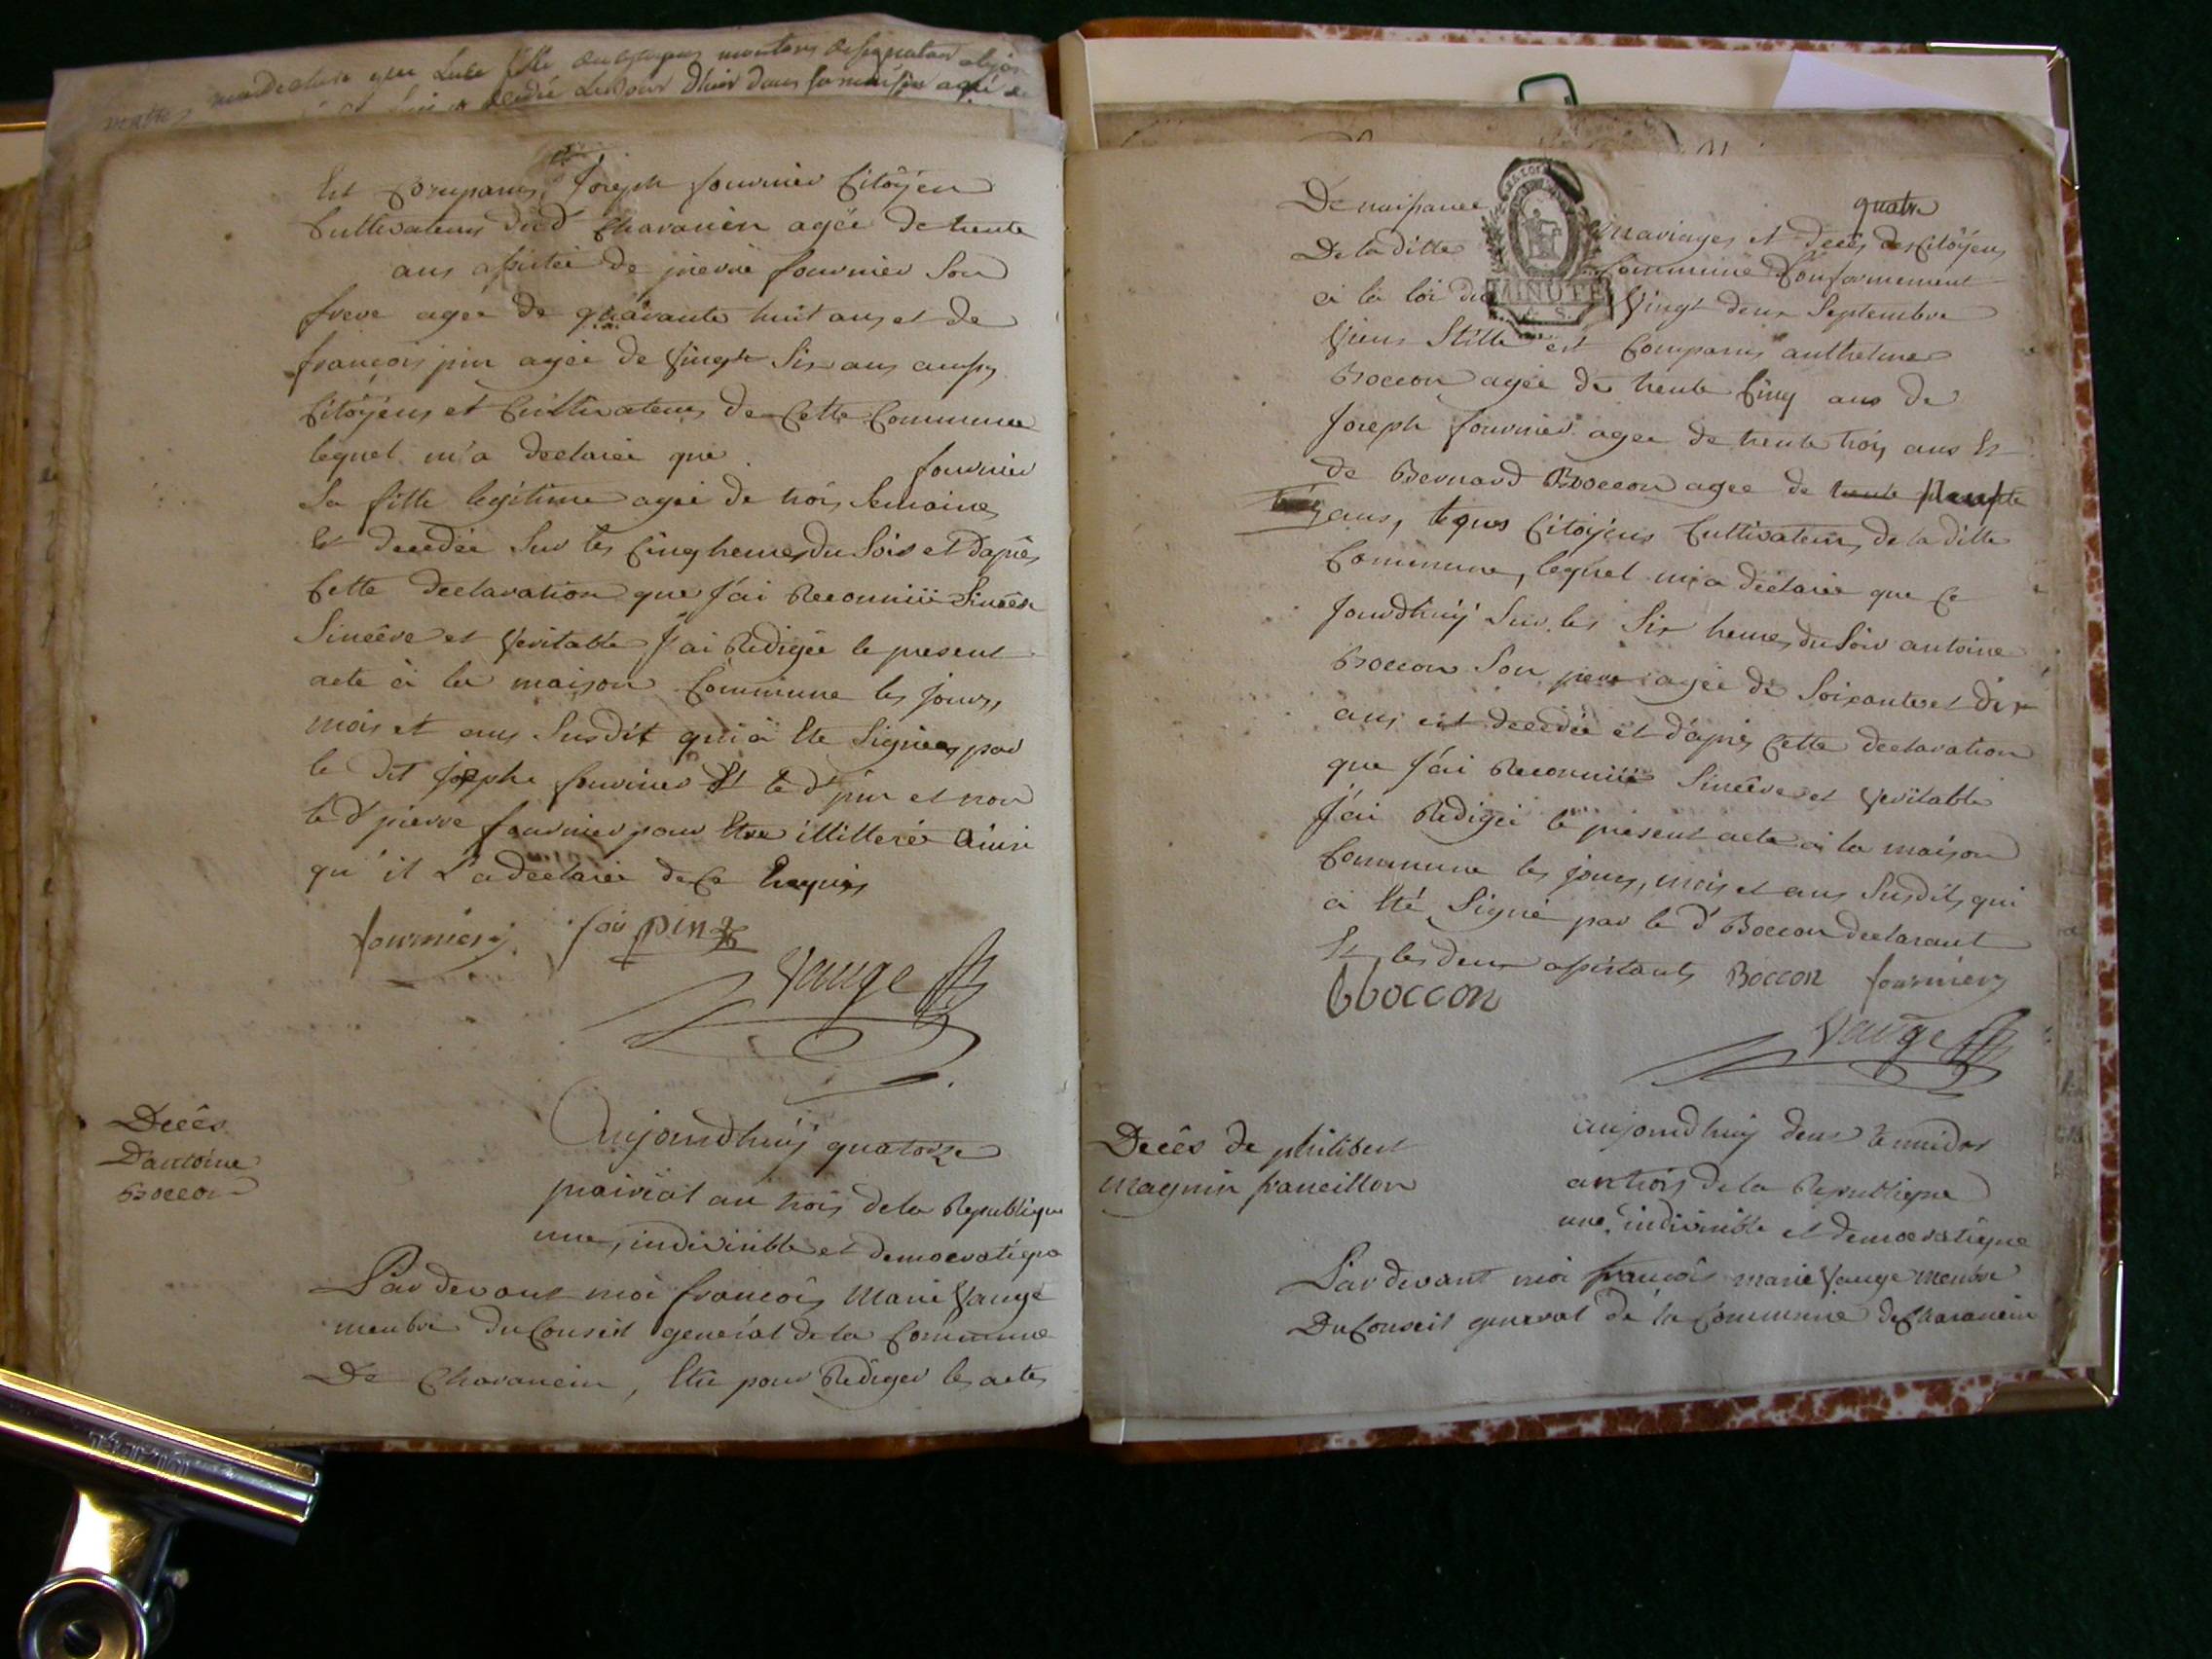 Est Comparus Joseph fournier Citöyen
Cultivateur dud Charancin agée de trente
ans assistée de pierre fournier Son
frere agée de quarante huit ans et de
françois pin agée de Vingt Six ans aussy
Citöyens et Cultivateurs de Cette Commune
lequel m'a declarée que fournier
Sa fille legitime agée de trois Semaines
Est decedée Sur les Cinq heures du Soir et Daprès
Cette declaration que J'ai Reconnüe Sincère
Sincère et Veritable J'ai Redigée le present
acte à la maison Commune les jours,
mois et ans Susdit qui à Ete Signée par
le dit Josephe fournier Et le d' pin et non
le d' pierre fournier pour Etre illitteré Ainsi
qu'il L'a declarée de Ce Requis
fournier fois pin
Vauge
Decès
D'antoine
Boccon
Aujourdhuÿ quatorze
prairial an trois de la Republique
une, indivisible et democratique
Pardevant moi françois Marie Vauge
membre du Conseil general de la Commune
De Charancin, Elu pour Rediger les actes
quatre
De naissance mariages et decès des Citöyens
De la ditte Commune Conformement
à la loi du Vingt deux Septembre
MINUTE
Vieux Stille est Comparus anthelme
Boccon agée de trente Cinq ans de
Joseph fournier agée de trente trois ans Et
de Bernard Boccon agée de trente
ans, Citoÿens Cultivateurs de la ditte
Commune, lequel m'a declarée que Ce
Jourdhuÿ Sur les Six heures du Soir antoine
Boccon Son pere agée de Soixante et dix
ans est decedée et d'après Cette declaration
que J'ai Reconnüe Sincère et Veritable
J'ai Redigée le present acte à la maison
Commune les jours, mois et ans Susdits, qui
à Eté Signé par le d' Boccon declarant
Et les deux assistants Boccon fournier
BBoccon
Vauge
Decès de philibert
Magnin francillon
aujourdhuÿ deux termidor
an trois de la Republique
une, indivisible et democratique
Pardevant moi françois marie Vauge membre
Du Conseil general de la Commune de Charancin